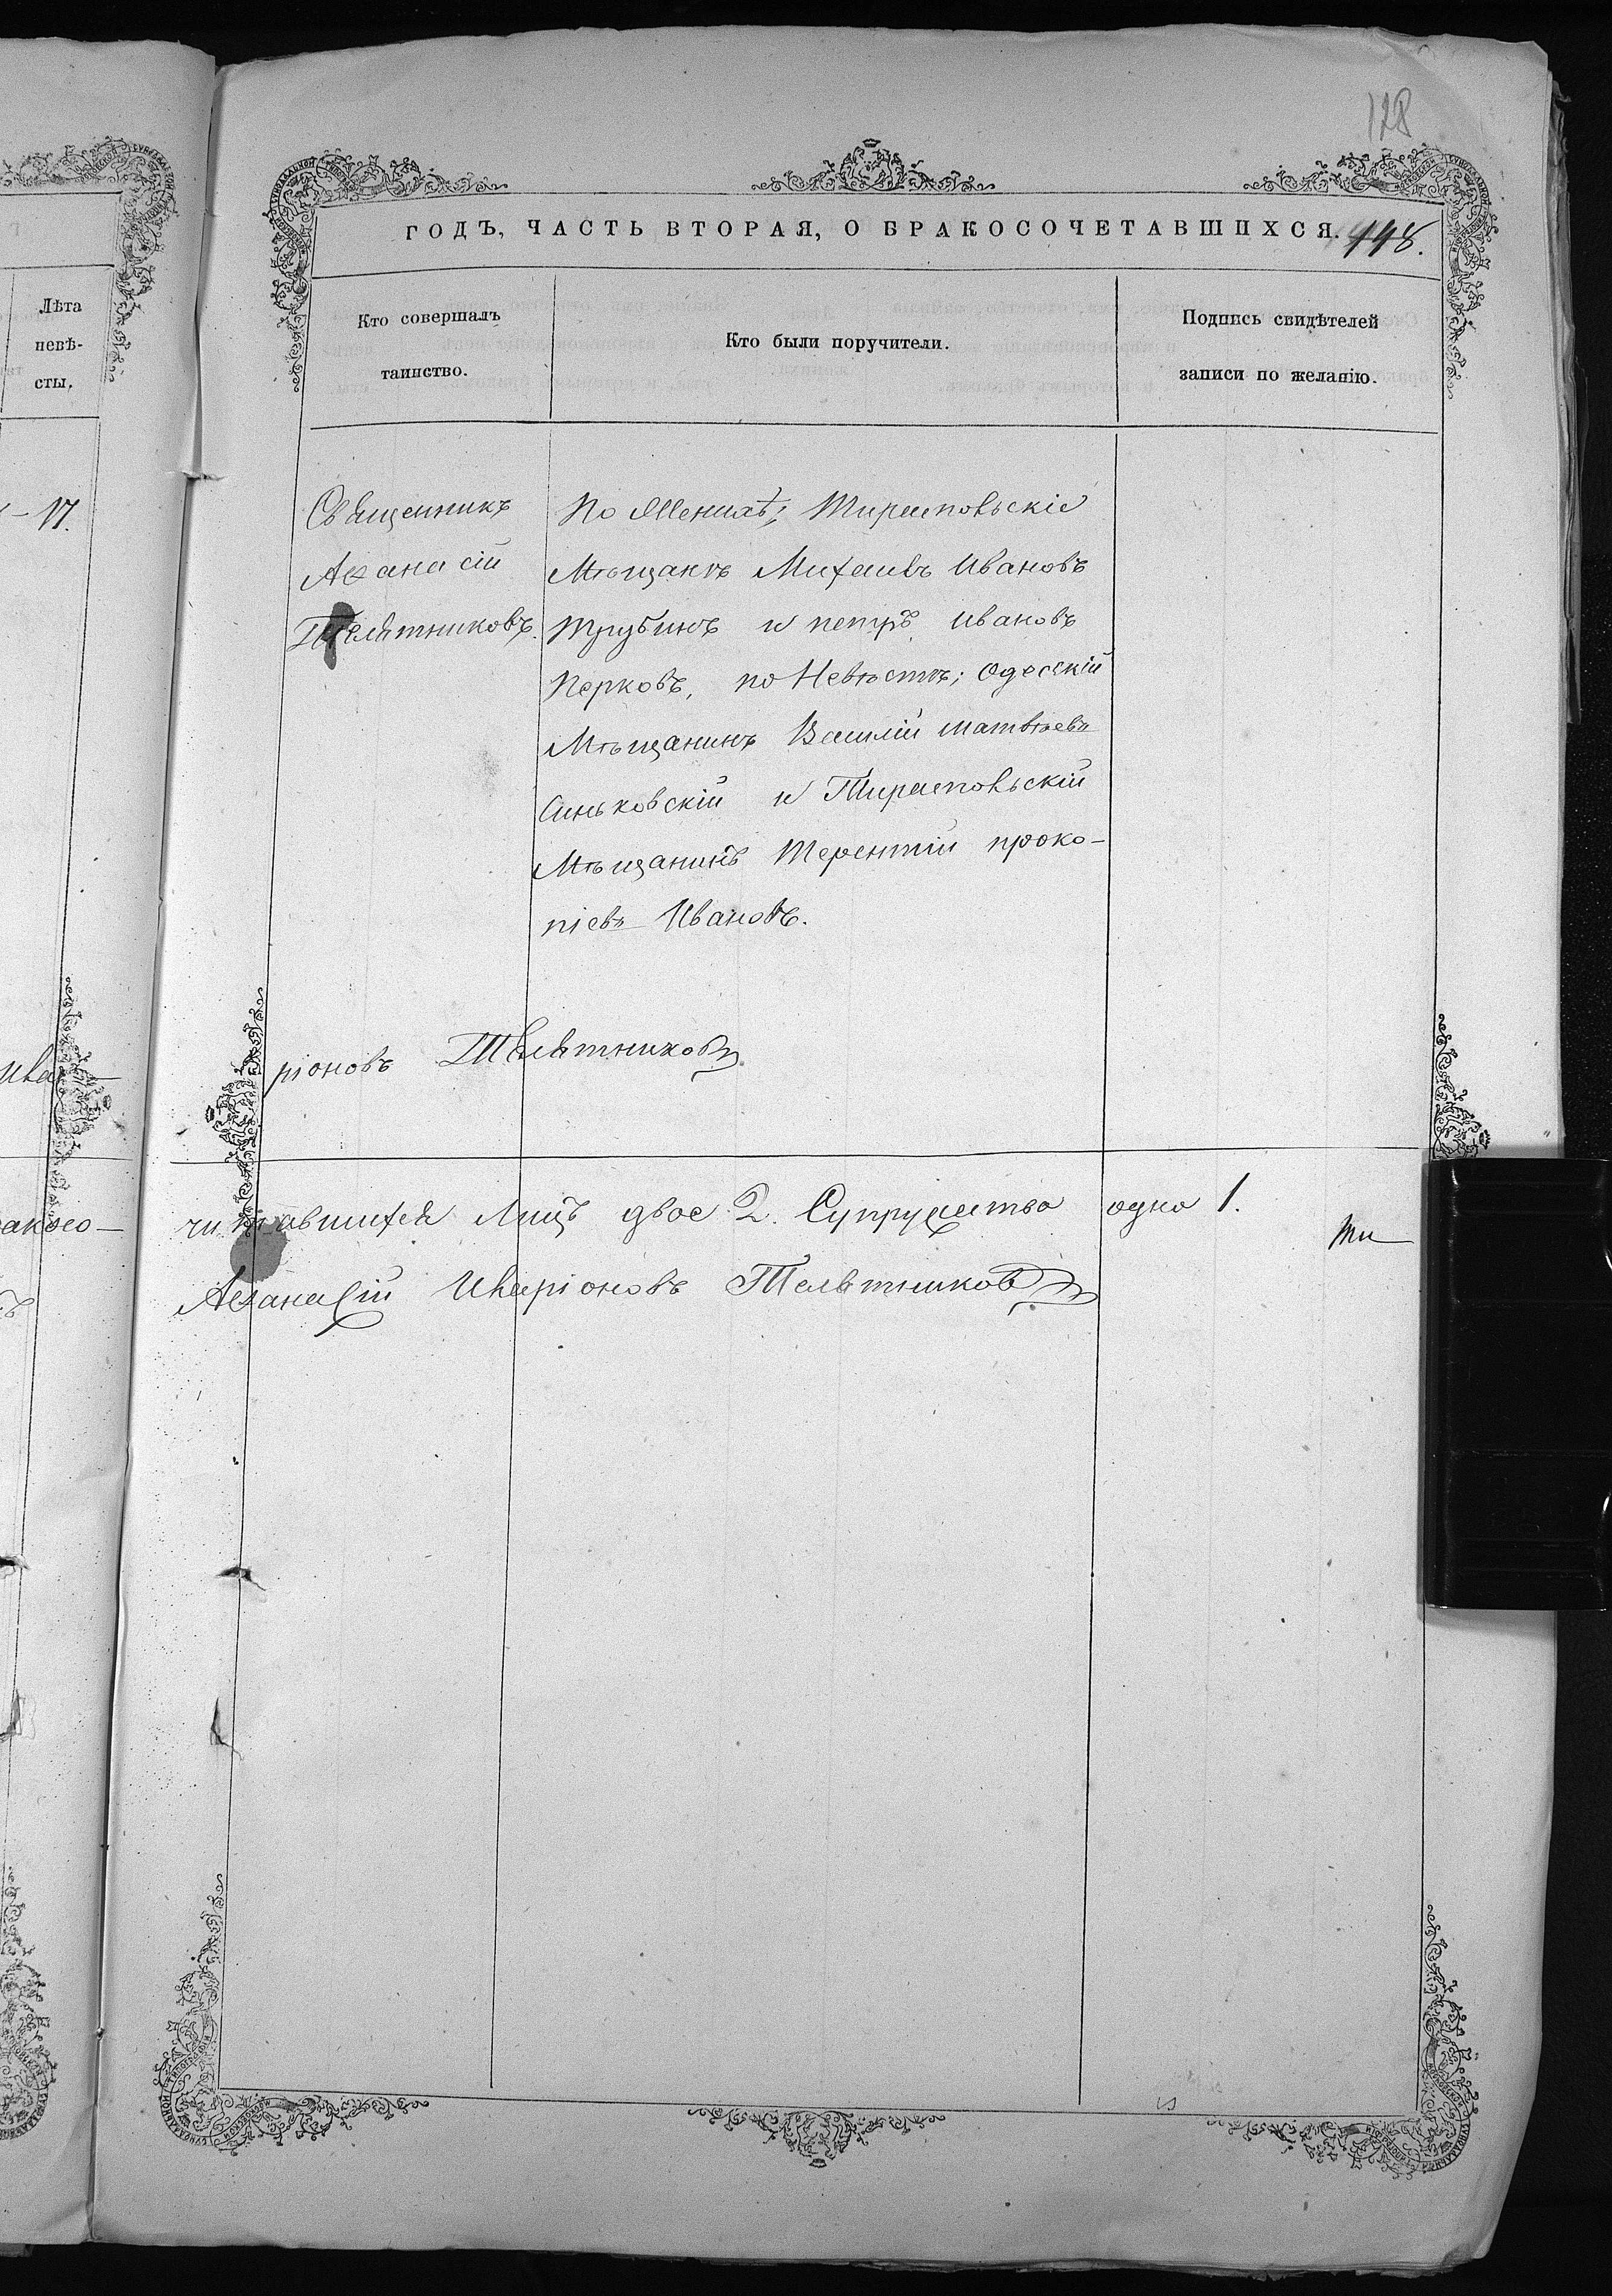 128
ГОДЪ, ЧАСТЬ ВТОРАЯ, О БРАКОСОЧЕТАВШИХСЯ. 448.
Лѣта
невѣ-
сты.
Кто совершалъ
таинство.
Кто были поручители.
Подпись свидѣтелей
записи по желанію.
17.
Священникъ
Аѳанасій
Телятниковъ.
По Женихѣ; Тираспольскіе
Мѣщане Михаилъ Ивановъ
Трубинъ и петръ Ивановъ
Перковъ, по Невѣстѣ; Одесскій
Мѣщанинъ Василій матвѣевъ
Синьковскій и Тираспольскій
Мѣщанинъ Терентій проко-
піевъ Ивановъ.
ріоновъ Телятниковъ
читавшихся Лицъ двое 2. Супружество одно 1.
Аѳанасій Иларіоновъ Телятниковъ